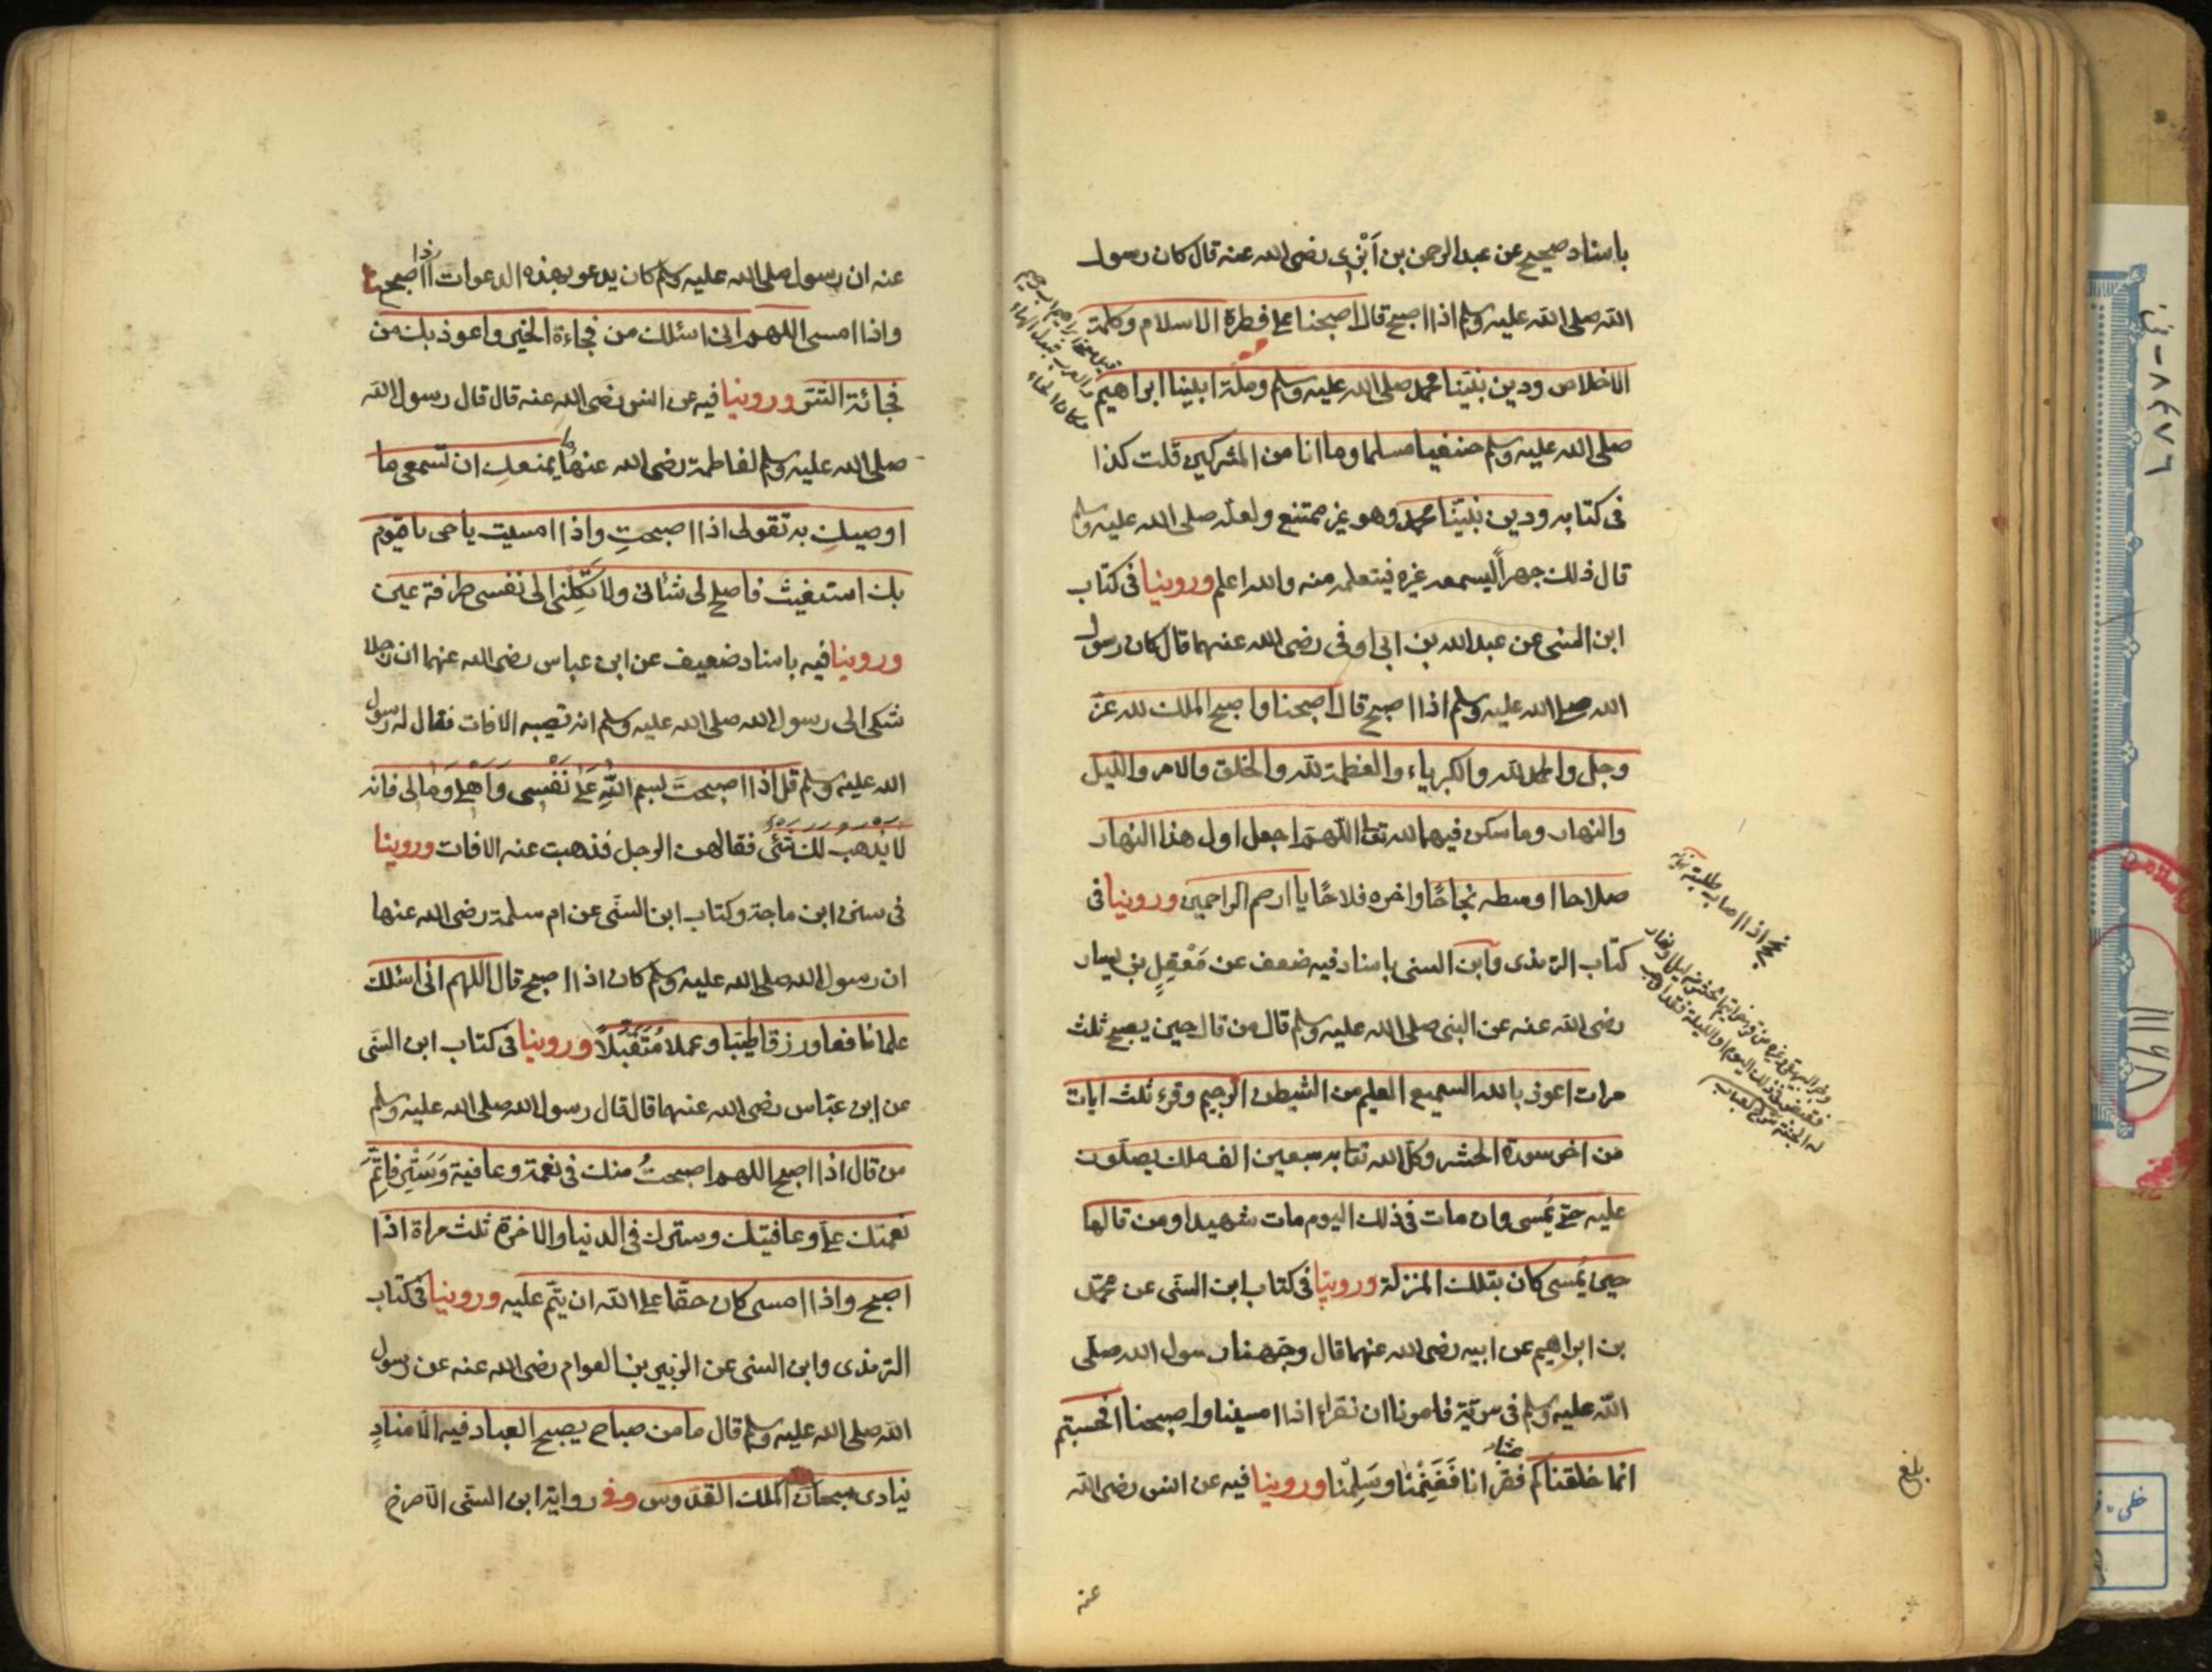 باسناد صحيح عن عبد الرحمن بن اَبْزى رضى الله عنه قال كان رسول
الله صلى الله عليه وسلم اذا اصبح قال اصبحنا على فطرة الاسلام وكلمة
الاخلاص ودين نبيّنا محمد صلى الله عليه وسلم وملة ابينا ابراهيم
صلى الله عليه وسلم حنيفا مسلما وما انا من المشركين قلت كذا
فى كتابه ودين نبيّنا محمد وهو غير ممتنع ولعله صلى الله عليه وسلم
قال ذلك جهراً ليسمعه غيره فيتعلمه منه والله اعلم وروينا فى كتاب
ابن السنى عن عبد الله بن ابى اوفى رضى الله عنهما قال كان رسول
الله صلى الله عليه وسلم اذا اصبح قال اصبحنا واصبح الملك لله عزّ
وجل والحمد لله والكبرياء والعظمة لله والخلق والامر والليل
والنهار وما سكن فيهما لله تعالى اللهم اجعل اول هذا النهار
صلاحا اوسطه نجاحًا واخره فلاحًا يا ارحم الراحمين وروينا فى
كتاب الترمذى وابن السنى باسناد فيه ضعف عن مَعْقِلِ بن يسار
رضى الله عنه عن النبى صلى الله عليه وسلم قال من قال حين يصبح ثلث
مرات اعوذ بالله السميع العليم من الشيطن الرجيم وقرء ثلث ايات
من اخر سورة الحشر وكّل الله تعا به سبعين الف ملك يصلّون
عليه حتى يُمسى وان مات فى ذلك اليوم مات شهيدا ومن قالها
حين يُمسى كان بتلك المنزلة وروينا فى كتاب ابن السنّى عن محمّد
بن ابراهيم عن ابيه رضى الله عنهما قال وجّهنا رسول الله صلى
الله عليه وسلم فى سريّة فامرنا ان نقراء اذا امسينا واصبحنا افحسبتم
انما خلقناكم عبثا فقرانا فَغَنِمْنَا وسَلِمْنا وروينا فيه عن انس رضى الله
عنه
نجح اذا اصاب طلبته
بلغ
عنه ان رسول صلى الله عليه وسلم كان يدعو بهذه الدعوات اذا اصبح
واذا امسى اللهم انى اسئلك من فجاءة الخير واعوذ بك من
فجائة الشر وروينا فيه عن انس رضى الله عنه قال قال رسول الله
صلى الله عليه وسلم لفاطمة رضى الله عنها ما يمنعكِ ان تسمعى ما
اوصيكِ به تقولى اذا اصبحتِ واذا امسيت يا حى يا قيوم
بك استغيث فاصلح لى شانى ولا تَكِلْنى الى نفسى طرفة عين
وروينا فيه باسناد ضعيف عن ابن عباس رضى الله عنهما ان رجلا
شكى الى رسول الله صلى الله عليه وسلم انه تصيبه الافات فقال له رسول
الله عليه وسلم قل اذا اصبحتَ بسم اللهِ عَلَى نَفْسِى وَاَهْلِى وَمَالى فانه
لا يذهب لك شئى فقالهن الرجل فذهبت عنه الافات وروينا
فى سنن ابن ماجة وكتاب ابن السنّى عن ام سلمة رضى الله عنها
ان رسول الله صلى الله عليه وسلم كان اذا اصبح قال اللهم انى اسئلك
علما نافعا ورزقا طيّبا وعملا مُتَقَبَّلاً وروينا فى كتاب ابن السنّى
عن ابن عبّاس رضى الله عنهما قال قال رسول الله صلى الله عليه وسلم
من قال اذا اصبح اللهم اصبحتُ منك فى نعمة وعافية وَسَتْرٍ فاتِمَّ
نعمتك علىّ وعافيتك وسترك فى الدنيا والاخرة ثلث مراة اذا
اصبح واذا امسى كان حقا على الله ان يتمّ عليه وروينا فى كتاب
الترمذى وابن السنى عن الزبير بن العوام رضى الله عنه عن رسول
الله صلى الله عليه وسلم قال ما من صباح يصبح العباد فيه الا منادٍ
ينادى سبحان الملك القدوس وفى رواية ابن السنّى الا صرخ